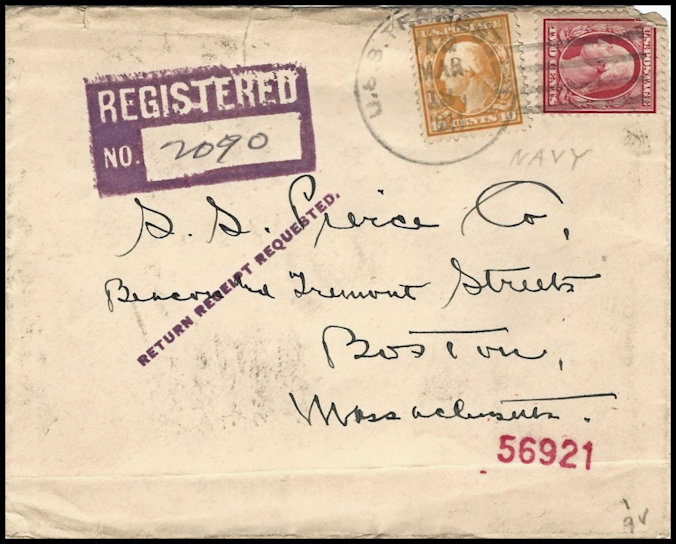 REGISTERED
NO. 2090
U.S.S.
MAR
U.S. POSTAGE
10 CENTS 10
U.S. POSTAGE
TWO CENTS
NAVY
S. S. Pierce Co,
Beacon and Tremont Streets
RETURN RECEIPT REQUESTED.
Boston,
Massachusetts.
56921